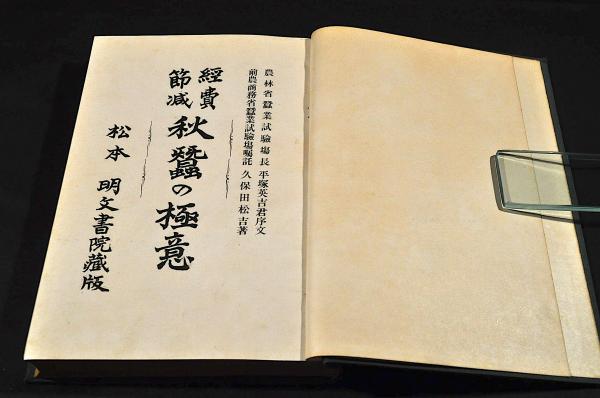 農林省蠶業試驗場長 平塚英吉君序文
前農商務省蠶業試驗場囑託 久保田松吉著
經費
節減
秋蠶の極意
松本 明文書院藏版